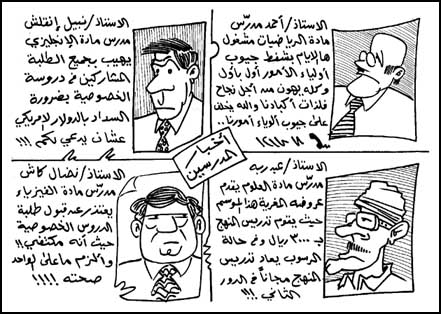 الاستاذ/أحمد مدرّس
مادة الرياضيات مشغول
هالايام بشفط جيوب
أولياء الأمور أول بأول
وكله يهون من أجل نجاح
فلذات أكبادنا والله يخلف
على جيوب أولياء أمورنا..
الاستاذ/نبيل إنقلش
مدرس مادة الانجليزي
يهيب بجميع الطلبة
المشاركين في دروسة
الخصوصية بضرورة
السداد بالدولار الامريكي
عشان يدعي لكم !!!
أخبار
المدرسين
الاستاذ/عبدربه
مدرّس مادة العلوم يقدم
عروضه المغرية هذا الموسم
حيث يتم تدريس المنهج
بـ ٣٠٠٠ ريال وفي حالة
الرسوب يعاد تدريس
المنهج مجاناً في الدور
الثاني !!!
الاستاذ/نضال كاش
مدرّس مادة الفيزياء
يعتذر عن قبول طلبة
الدروس الخصوصية
حيث أنه مكتفي!!
والحزم ما على الواحد
صحته !!!!